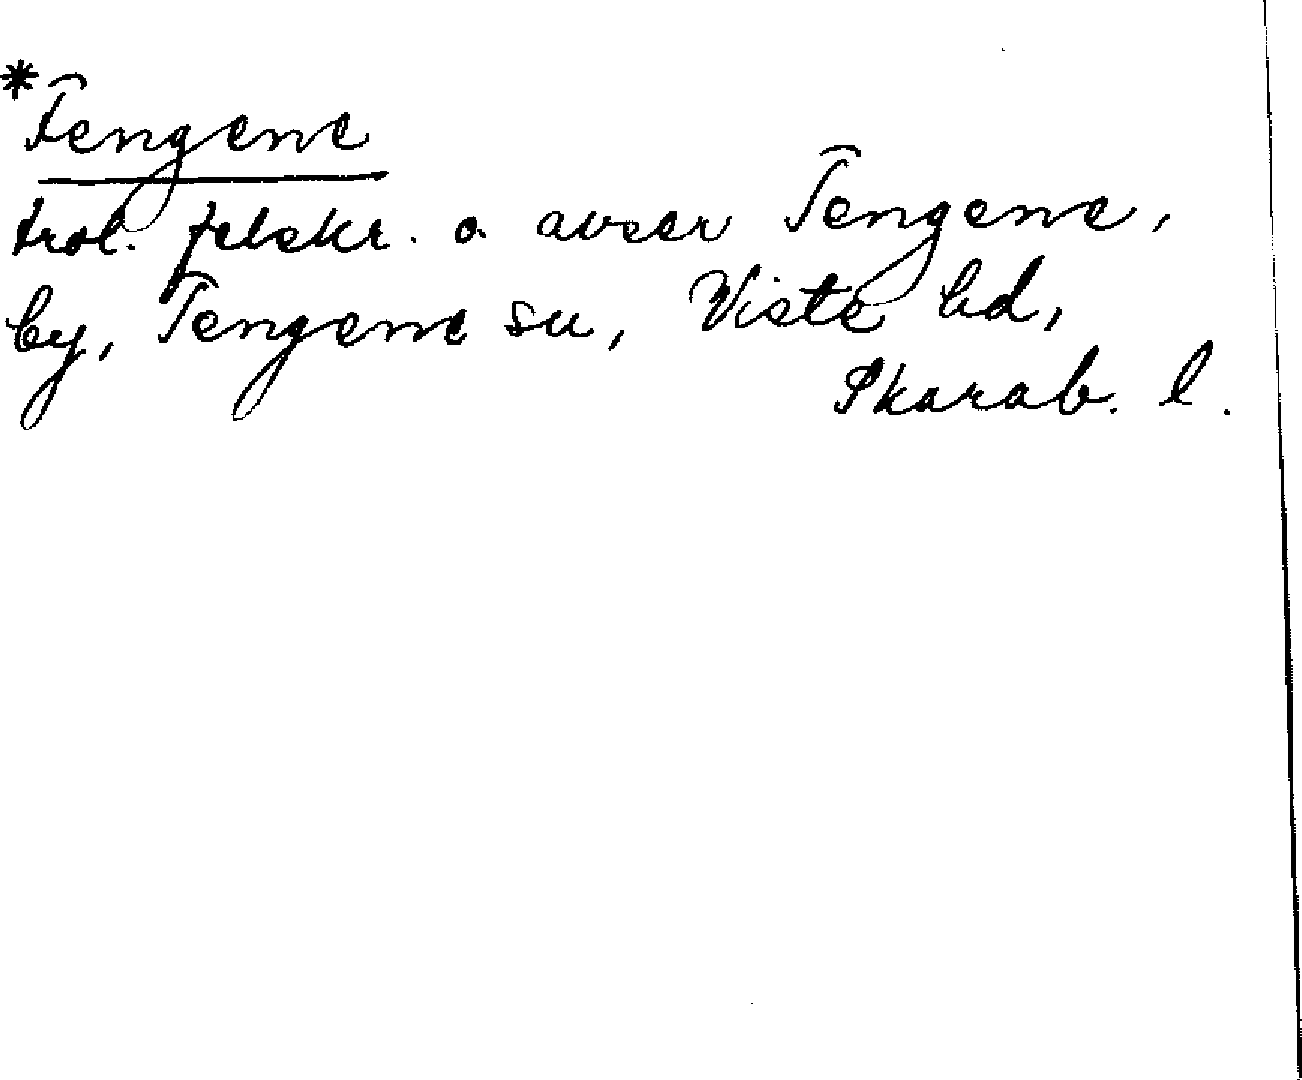 *Tengene
trol. felskr. o. avser Tengene,
by, Tengene sn, Viste hd,
Skarab. l.